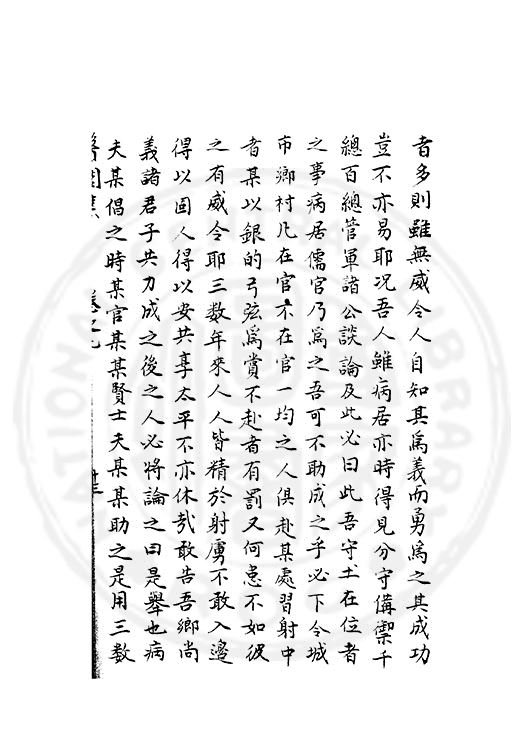 者多則雖無威令人自知其爲義而勇爲之其成功
豈不亦易耶况吾人雖病居亦時得見分守備禦千
總百總管軍諸公談論及此必曰此吾守土在位者
之事病居儒官乃爲之吾可不助成之乎必下令城
市鄉村凡在官不在官一均之人俱赴某處習射中
者某以銀的弓弦爲賞不赴者有罰又何患不如彼
之有威令耶三数年來人人皆精於射虜不敢入邊
得以固人得以安共享太平不亦休哉敢告吾鄉尚
義諸君子共力成之後之人必將論之曰是舉也病
夫某倡之時某官某某賢士夫某某助之是用三数
卷之九